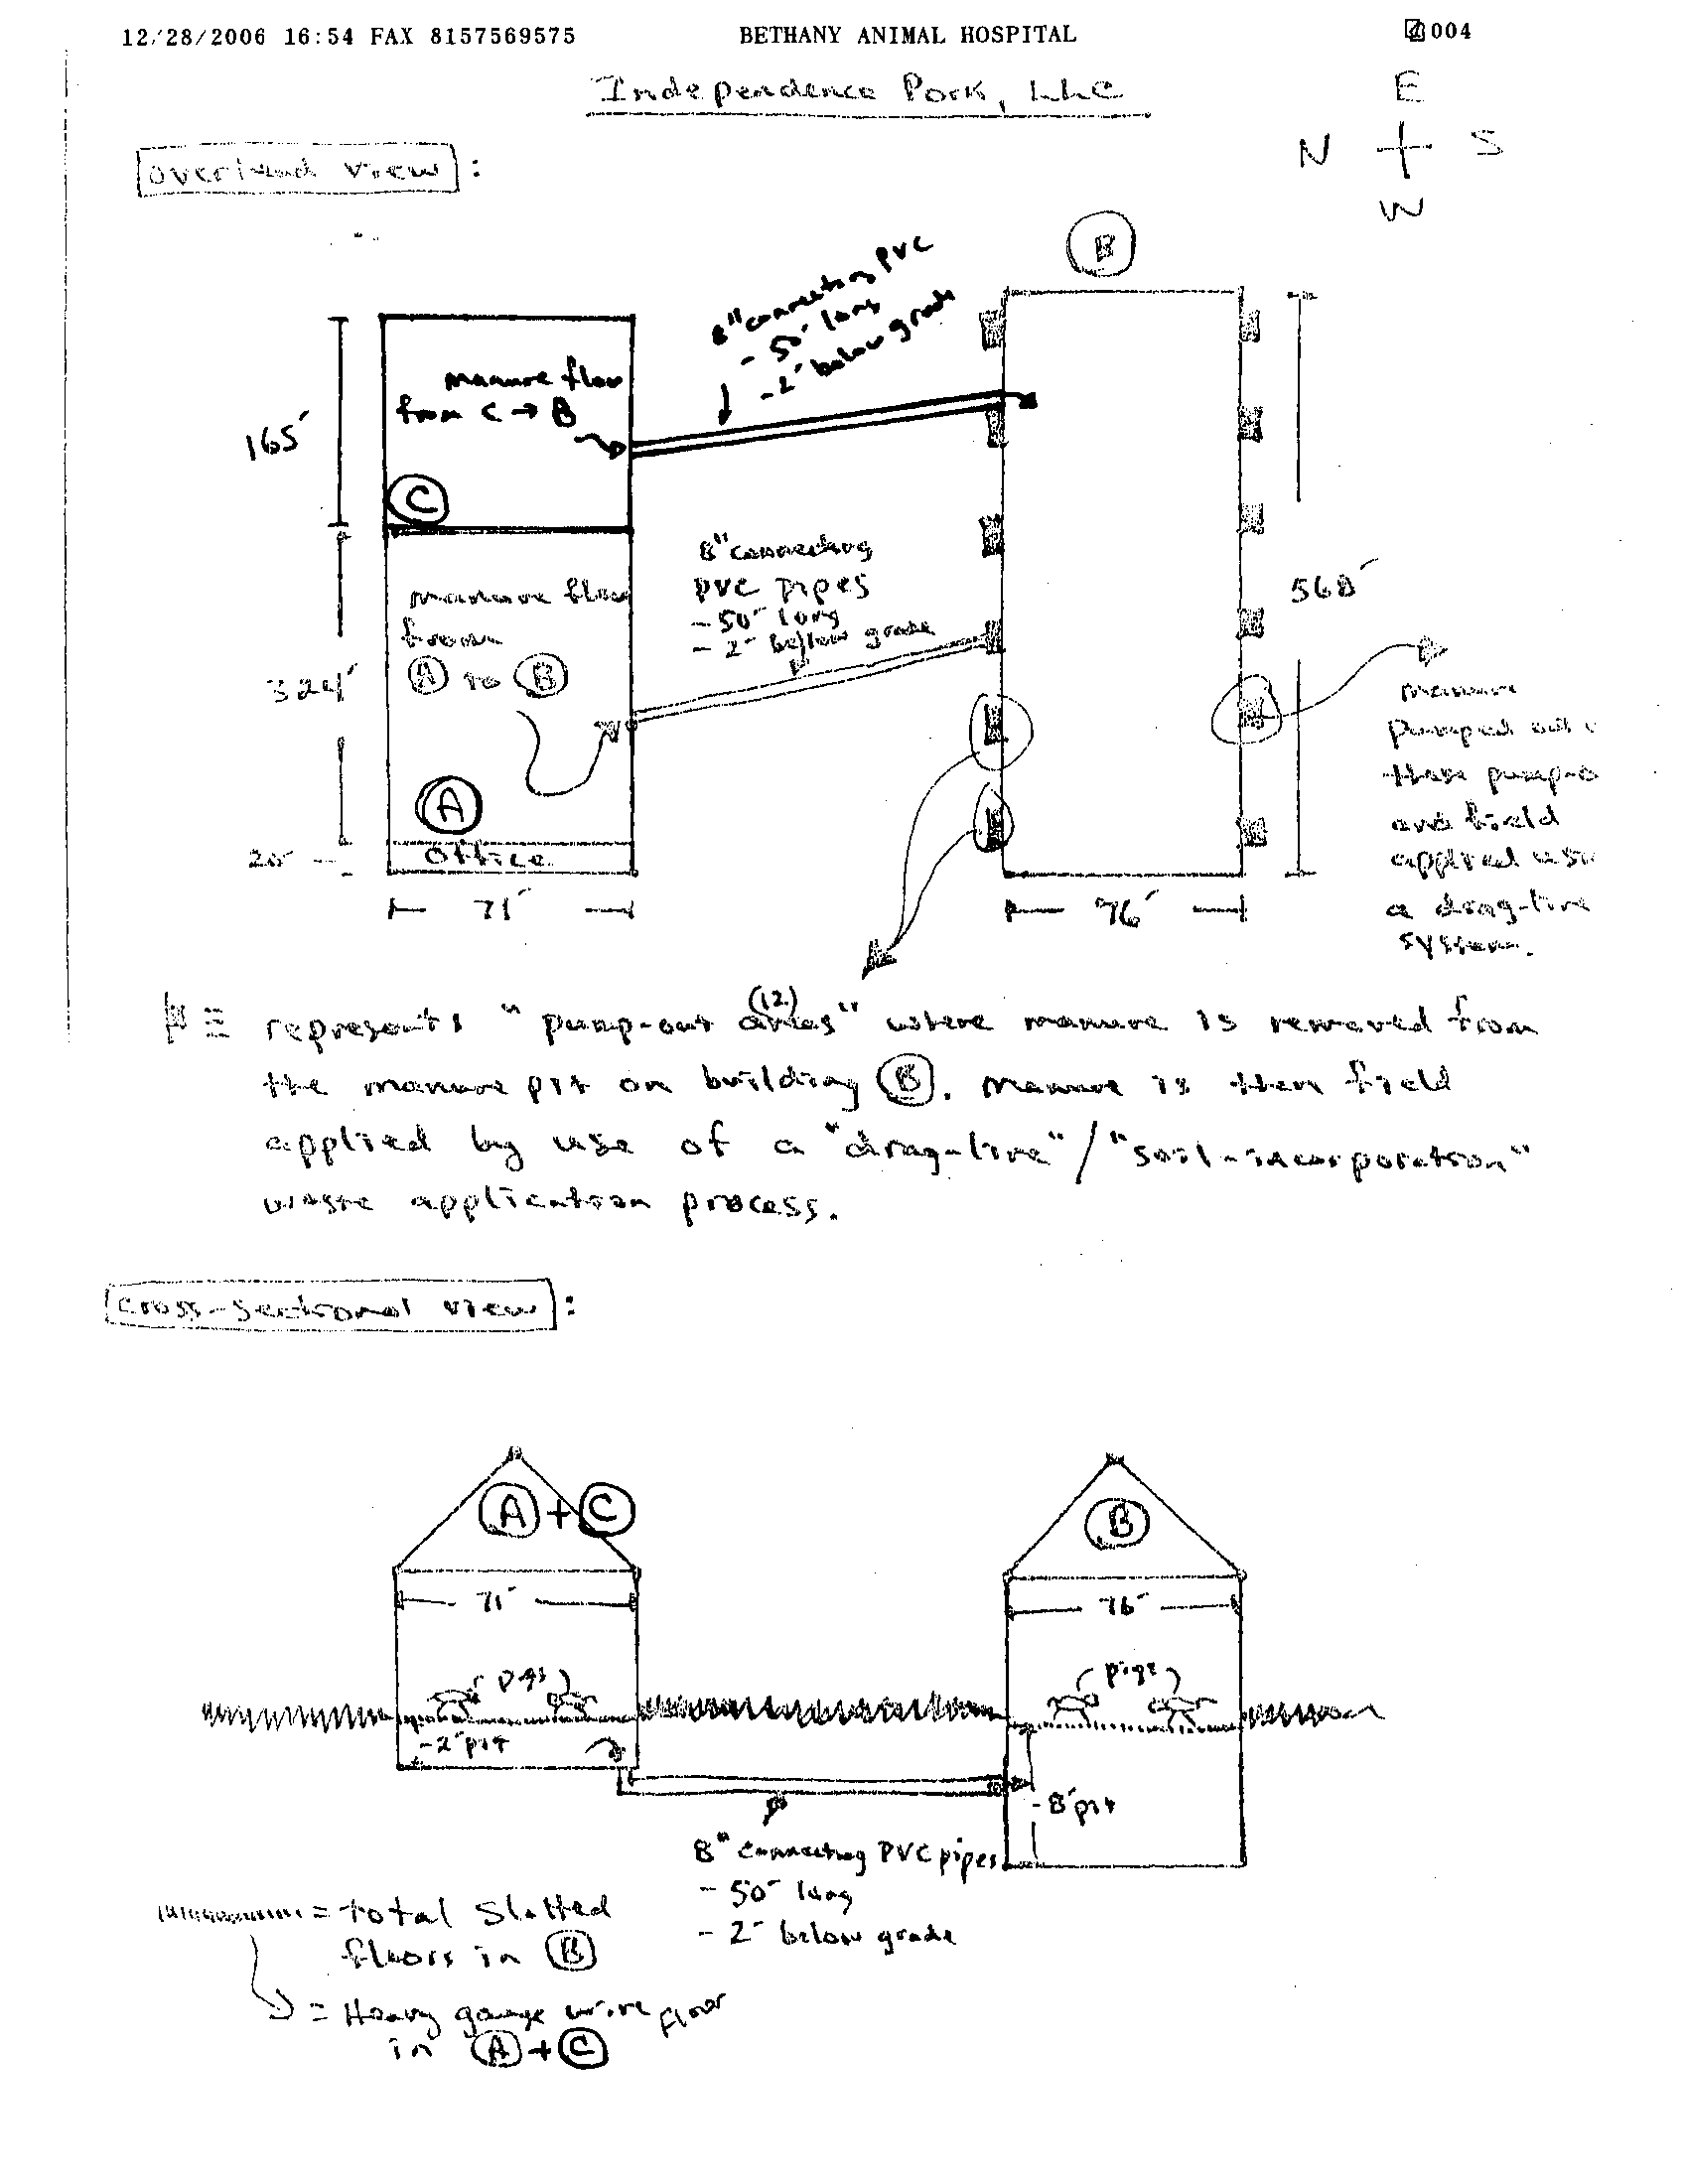 12/28/2006 16:54 FAX 8157569575 BETHANY ANIMAL HOSPITAL 004
Independence Pork, LLC
E
N S
W
overhead view :
B
8" connecting PVC
- 50' long
- 2' below grade
manure flow
from C → B
165'
C
8" connecting
PVC pipes
- 50' long
- 2' below grade
manure flow
from
A to B
324'
560'
manure
pumped out
these pump-o
and field
applied usi
a drag-line
system.
A
20'
Office
71'
76'
≡ represents "pump-out areas" (12) where manure is removed from
the manure pit on building B. Manure is then field
applied by use of a "drag-line" / "soil-incorporation"
waste application process.
cross-sectional view :
A + C
B
71'
76'
pigs
pigs
- 2' pit
- 8' pit
8" connecting PVC pipes
- 50' long
- 2' below grade
= total slotted
floors in B
= Heavy gauge wire floor
in A + C